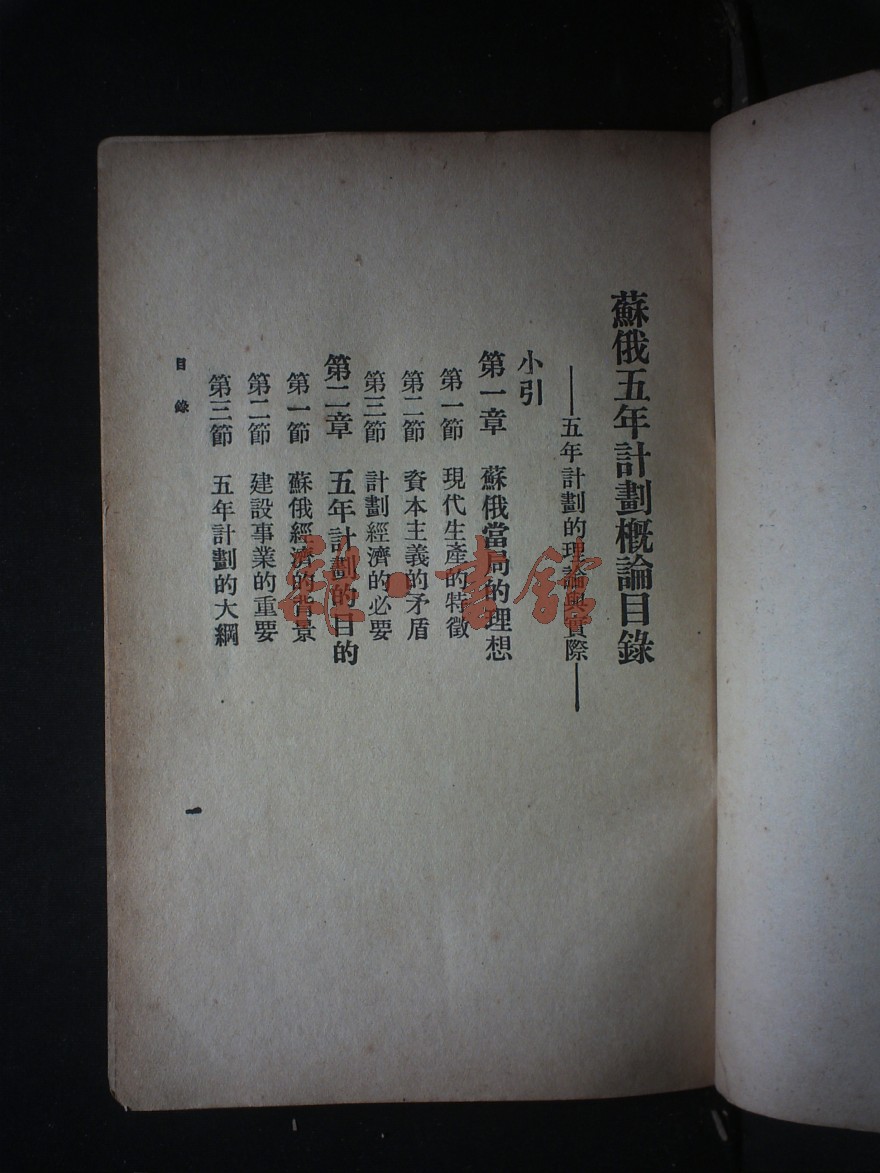 蘇俄五年計劃概論目錄
——五年計劃的理論與實際——
小引
第一章 蘇俄當局的理想
第一節 現代生產的特徵
第二節 資本主義的矛盾
第三節 計劃經濟的必要
第二章 五年計劃的目的
第一節 蘇俄經濟的背景
第二節 建設事業的重要
第三節 五年計劃的大綱
目錄
一